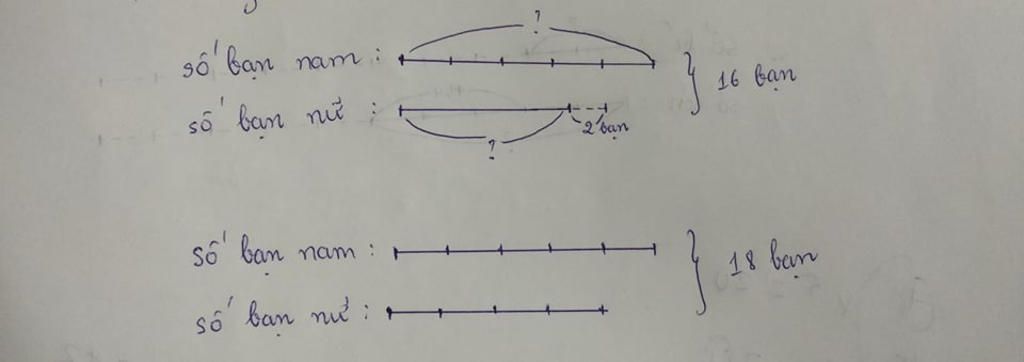 ?
số bạn nam : 16 bạn
số bạn nữ : 2 bạn
?
số bạn nam : 18 bạn
số bạn nữ :